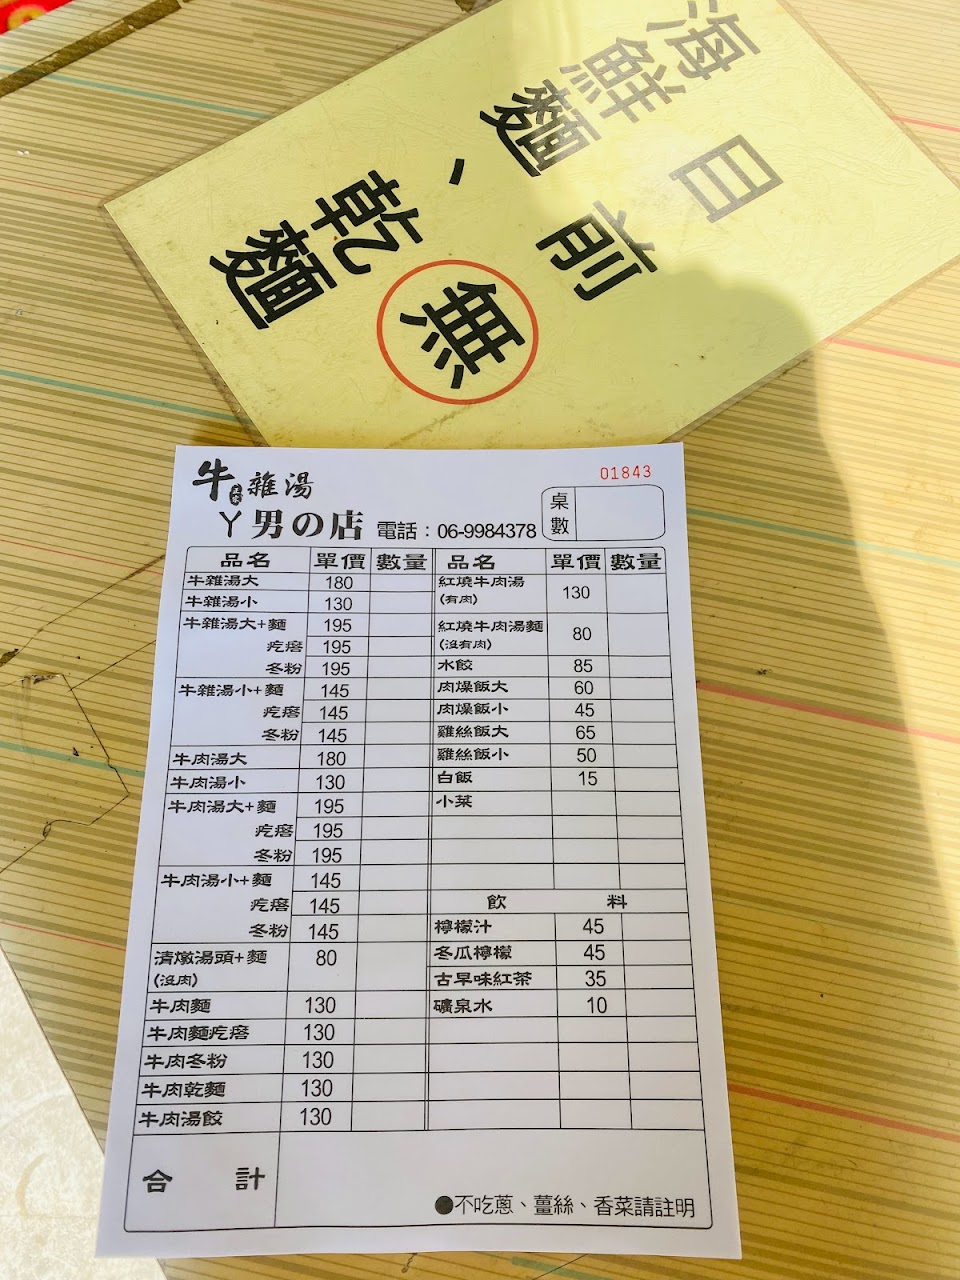 目前無
海鮮麵、乾麵
01843
牛雜湯
丫男の店 電話：06-9984378
桌數
品名 單價 數量 品名 單價 數量
牛雜湯大 180
牛雜湯小 130
牛雜湯大+麵 195
疙瘩 195
冬粉 195
牛雜湯小+麵 145
疙瘩 145
冬粉 145
牛肉湯大 180
牛肉湯小 130
牛肉湯大+麵 195
疙瘩 195
冬粉 195
牛肉湯小+麵 145
疙瘩 145
冬粉 145
清燉湯頭+麵 80
(沒肉)
牛肉麵 130
牛肉麵疙瘩 130
牛肉冬粉 130
牛肉乾麵 130
牛肉湯餃 130
紅燒牛肉湯 130
(有肉)
紅燒牛肉湯麵 80
(沒有肉)
水餃 85
肉燥飯大 60
肉燥飯小 45
雞絲飯大 65
雞絲飯小 50
白飯 15
小菜
飲料
檸檬汁 45
冬瓜檸檬 45
古早味紅茶 35
礦泉水 10
合計
●不吃蔥、薑絲、香菜請註明